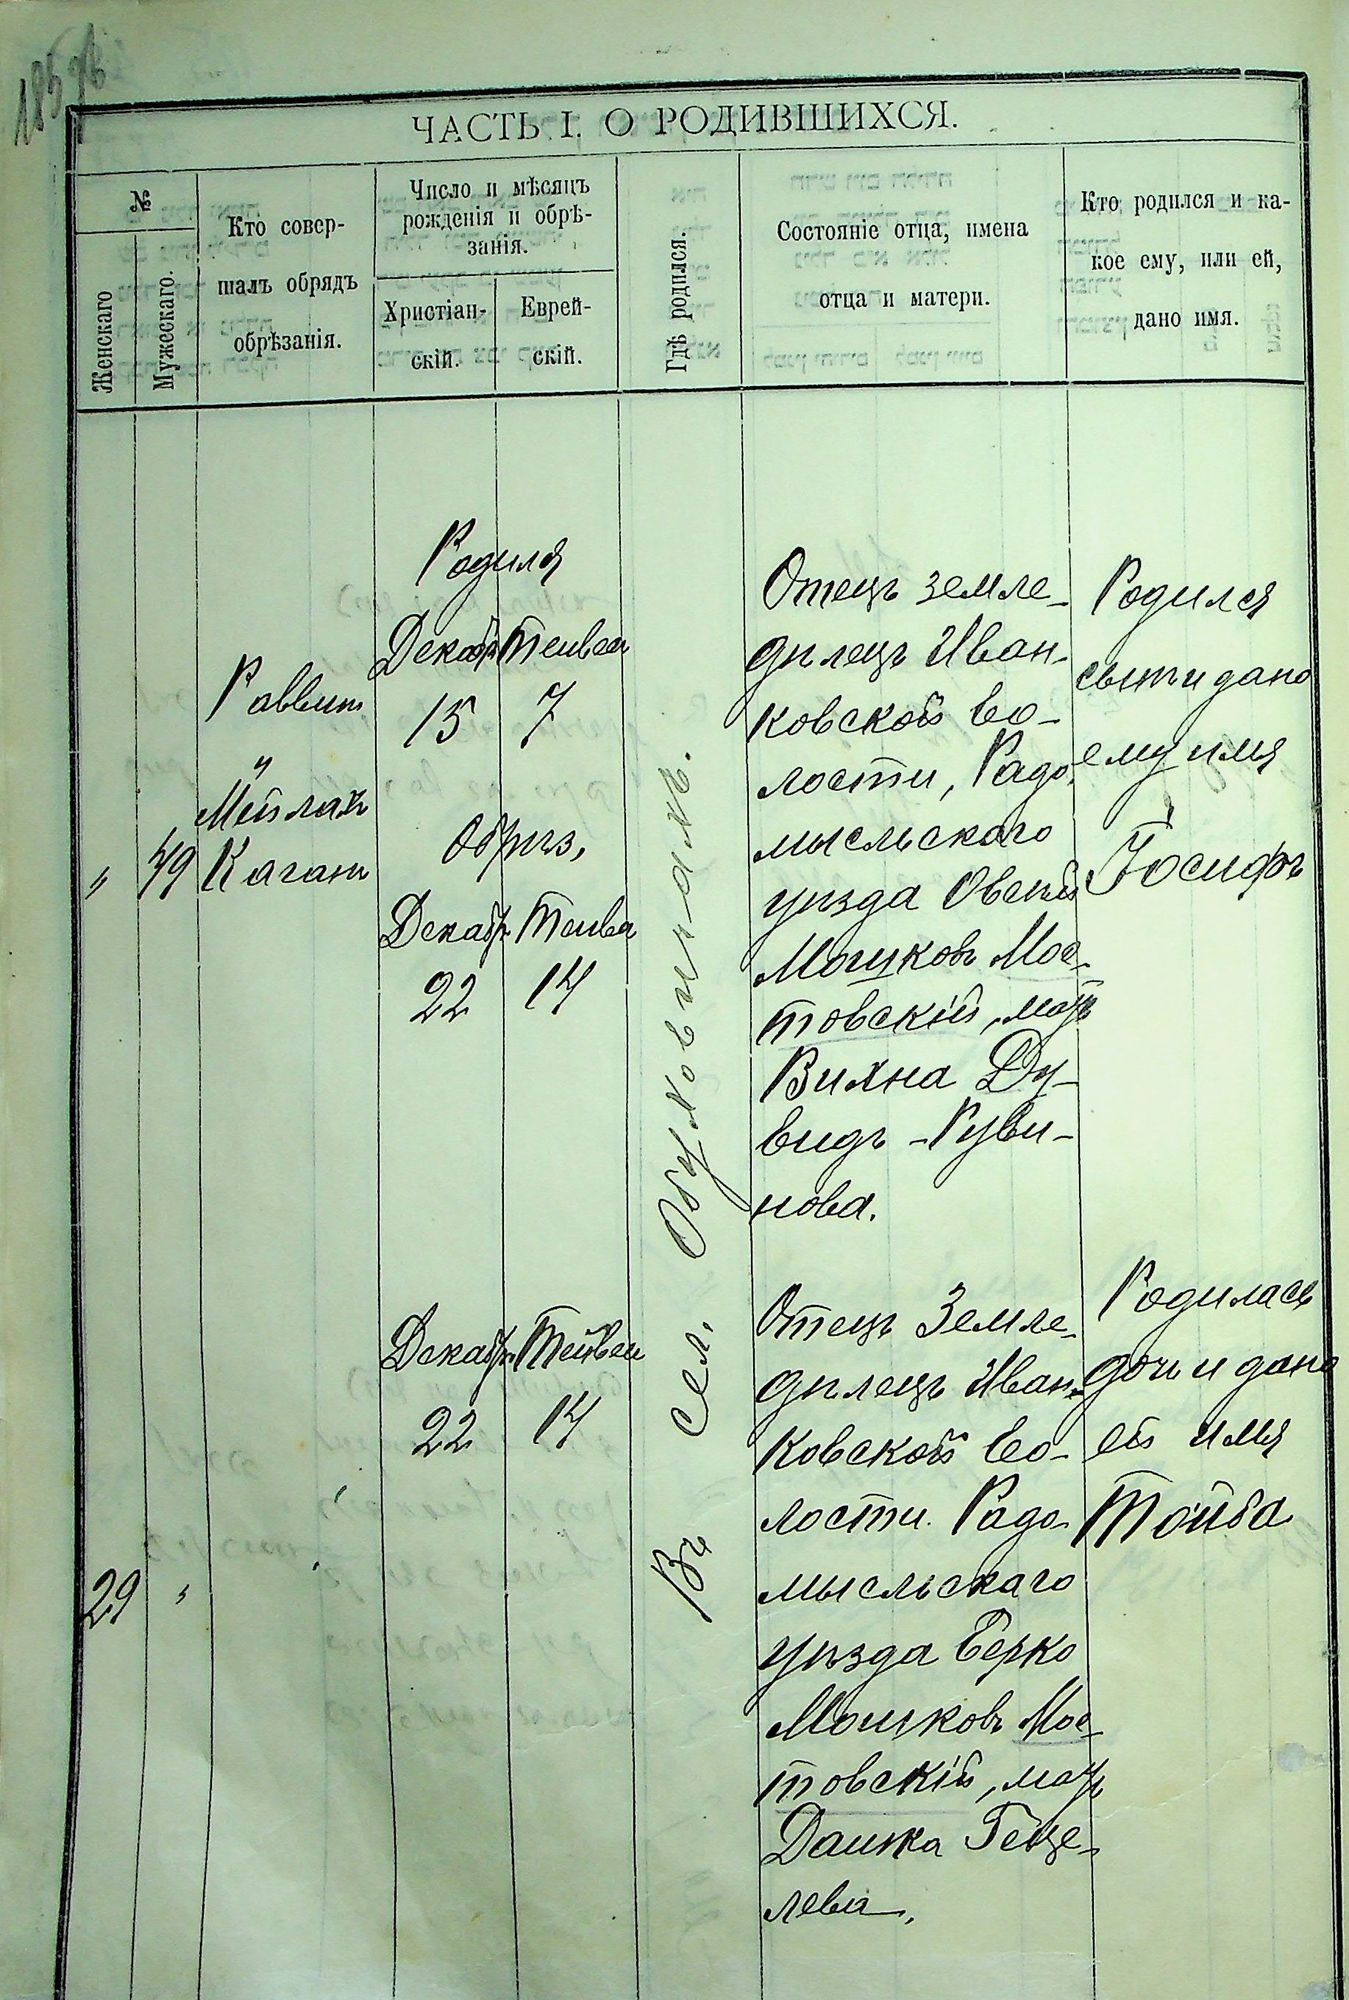 ЧАСТЬ I. О РОДИВШИХСЯ.
№
Женскаго
Мужескаго.
Кто совер-
шалъ обрядъ
обрѣзанія.
Число и мѣсяцъ
рожденія и обрѣ-
занія.
Христіан-
скій.
Еврей-
скій.
Гдѣ родился.
Состояніе отца, имена
отца и матери.
Кто родился и ка-
кое ему, или ей,
дано имя.
„
49
Раввинъ
и
Мейлахъ
Каганъ
Родился
Декабр. Тейвеса
15 7
Обрѣз.
Декабр. Тейвеса
22 14
Въ сел. Обуховичахъ.
Отецъ земле-
дѣлецъ Иван-
ковской во-
лости, Радо-
мысльскаго
уѣзда Овсей
Мошковъ Мос-
товскій, мать
Вихна Ду-
видъ-Руви-
нова.
Родился
сынъ и дано
ему имя
Іосифъ
29
„
Декабр. Тейвеса
22 14
Отецъ Земле-
дѣлецъ Иван-
ковской во-
лости. Радо-
мысльскаго
уѣзда Берко
Мошковъ Мос-
товскій, мать
Дашка Геце-
лева.
Родилась
дочь и дано
ей имя
Тойба